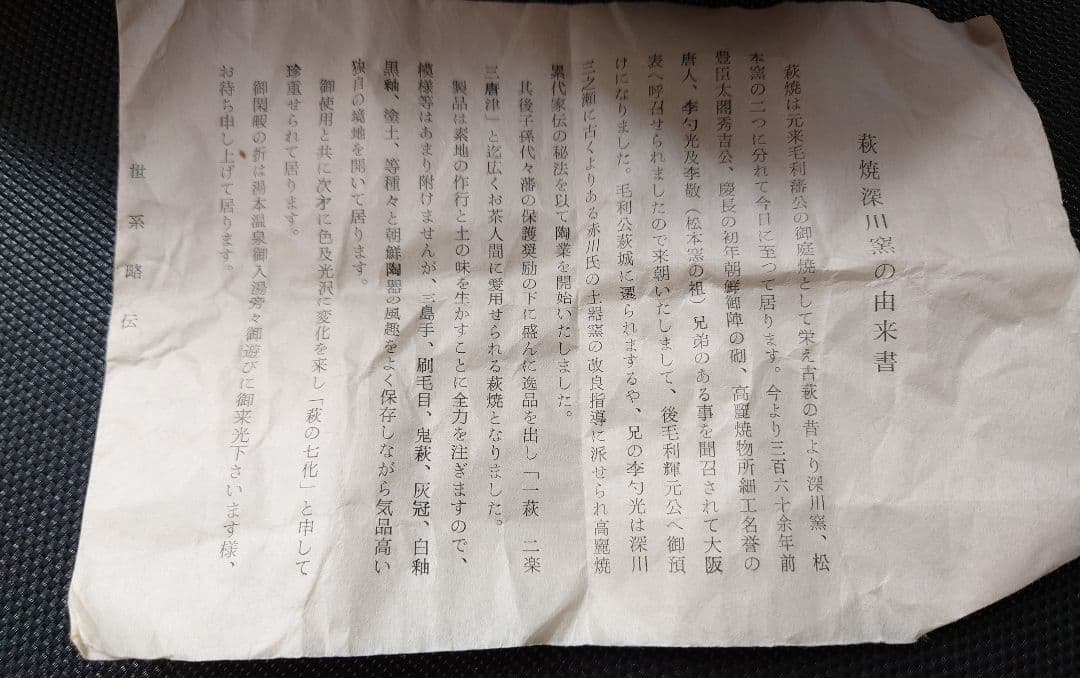 萩焼深川窯の由来書
萩焼は元来毛利藩公の御庭焼として栄え古萩の昔より深川窯、松
本窯の二つに分れて今日に至つて居ります。今より三百六十余年前
豊臣太閤秀吉公、慶長の初年朝鮮御陣の砌、高麗焼物所細工名誉の
唐人、李勺光及李敬（松本窯の祖）兄弟のある事を聞召されて大阪
表へ呼召せられましたので来朝いたしまして、後毛利輝元公へ御預
けになりました。毛利公萩城に遷られますや、兄の李勺光は深川
三之瀬に古くよりある赤川氏の土器窯の改良指導に派せられ高麗焼
累代家伝の秘法を以て陶業を開始いたしました。
其後子孫代々藩の保護奨励の下に盛んに逸品を出し「一萩　二楽
三唐津」と迄広くお茶人間に愛用せられる萩焼となりました。
製品は素地の作行と土の味を生かすことに全力を注ぎますので、
模様等はあまり附けませんが、三島手、刷毛目、鬼萩、灰冠、白釉
黒釉、塗土、等種々と朝鮮陶器の風趣をよく保存しながら気品高い
独自の境地を開いて居ります。
御使用と共に次才に色及光沢に変化を来し「萩の七化」と申して
珍重せられて居ります。
御閑暇の折は湯本温泉御入湯旁々御遊びに御来光下さいます様、
お待ち申し上げて居ります。
世系略伝